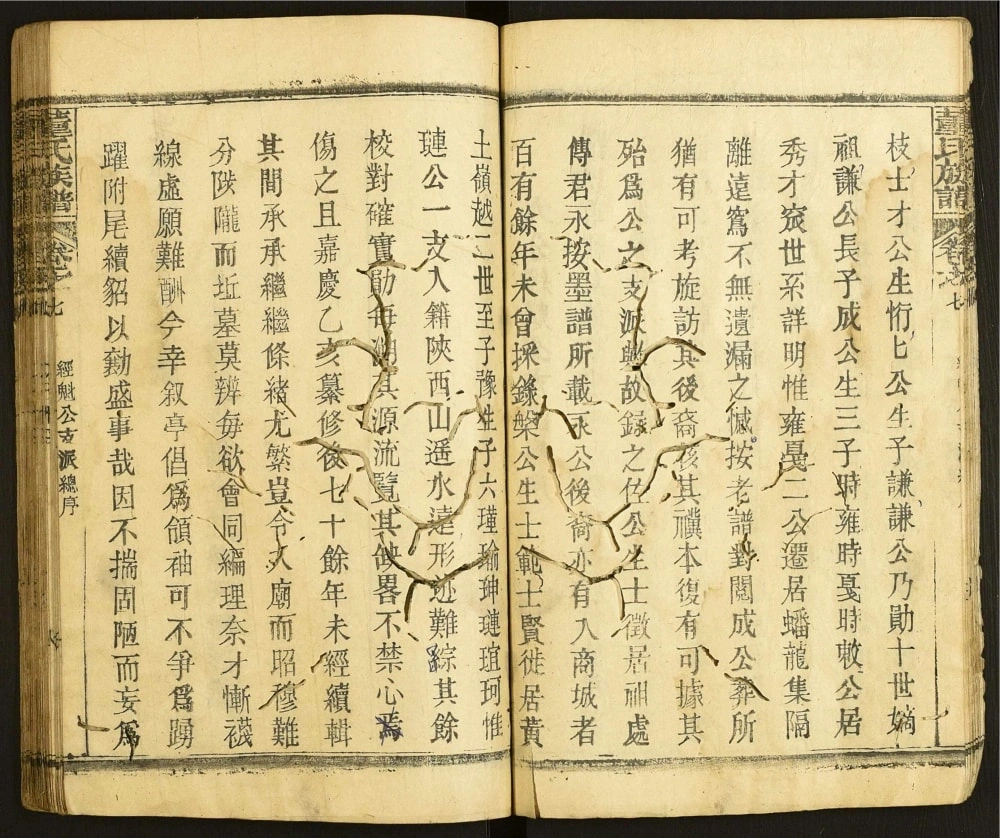 董氏族譜
卷
七
枝士才公生恂七公生子謙謙公乃勛十世嫡
祖謙公長子成公生三子時雍時戞時敕公居
秀才峧世系詳明惟雍戞二公遷居蟠龍集隔
離遠寫不無遺漏之憾按老譜對閱成公葬所
猶有可考旋訪其後裔核其禩本復有可據其
殆爲公之支派與故錄之佐公生士徵居祖處
傳君永按墨譜所載永公後裔亦有入商城者
百有餘年未曾採錄槃公生士範士賢徙居黃
土嶺越二世至子豫生子六瑾瑜珅璉瑄珂惟
璉公一支入籍陝西山遥水遠形迹難綜其餘
校對確實勛每溯其源流覽其缺畧不禁心焉
傷之且嘉慶乙亥纂修後七十餘年未經續輯
其間承承繼繼條緒尤繁豈令入廟而昭穆難
分陟隴而坵墓莫辨每欲會同編理奈才慚襪
線虛願難酬今幸叙亭倡爲領袖可不爭爲踴
躍附尾續貂以勷盛事哉因不揣固陋而妄爲
董氏族譜
卷
經魁公支派總序
七